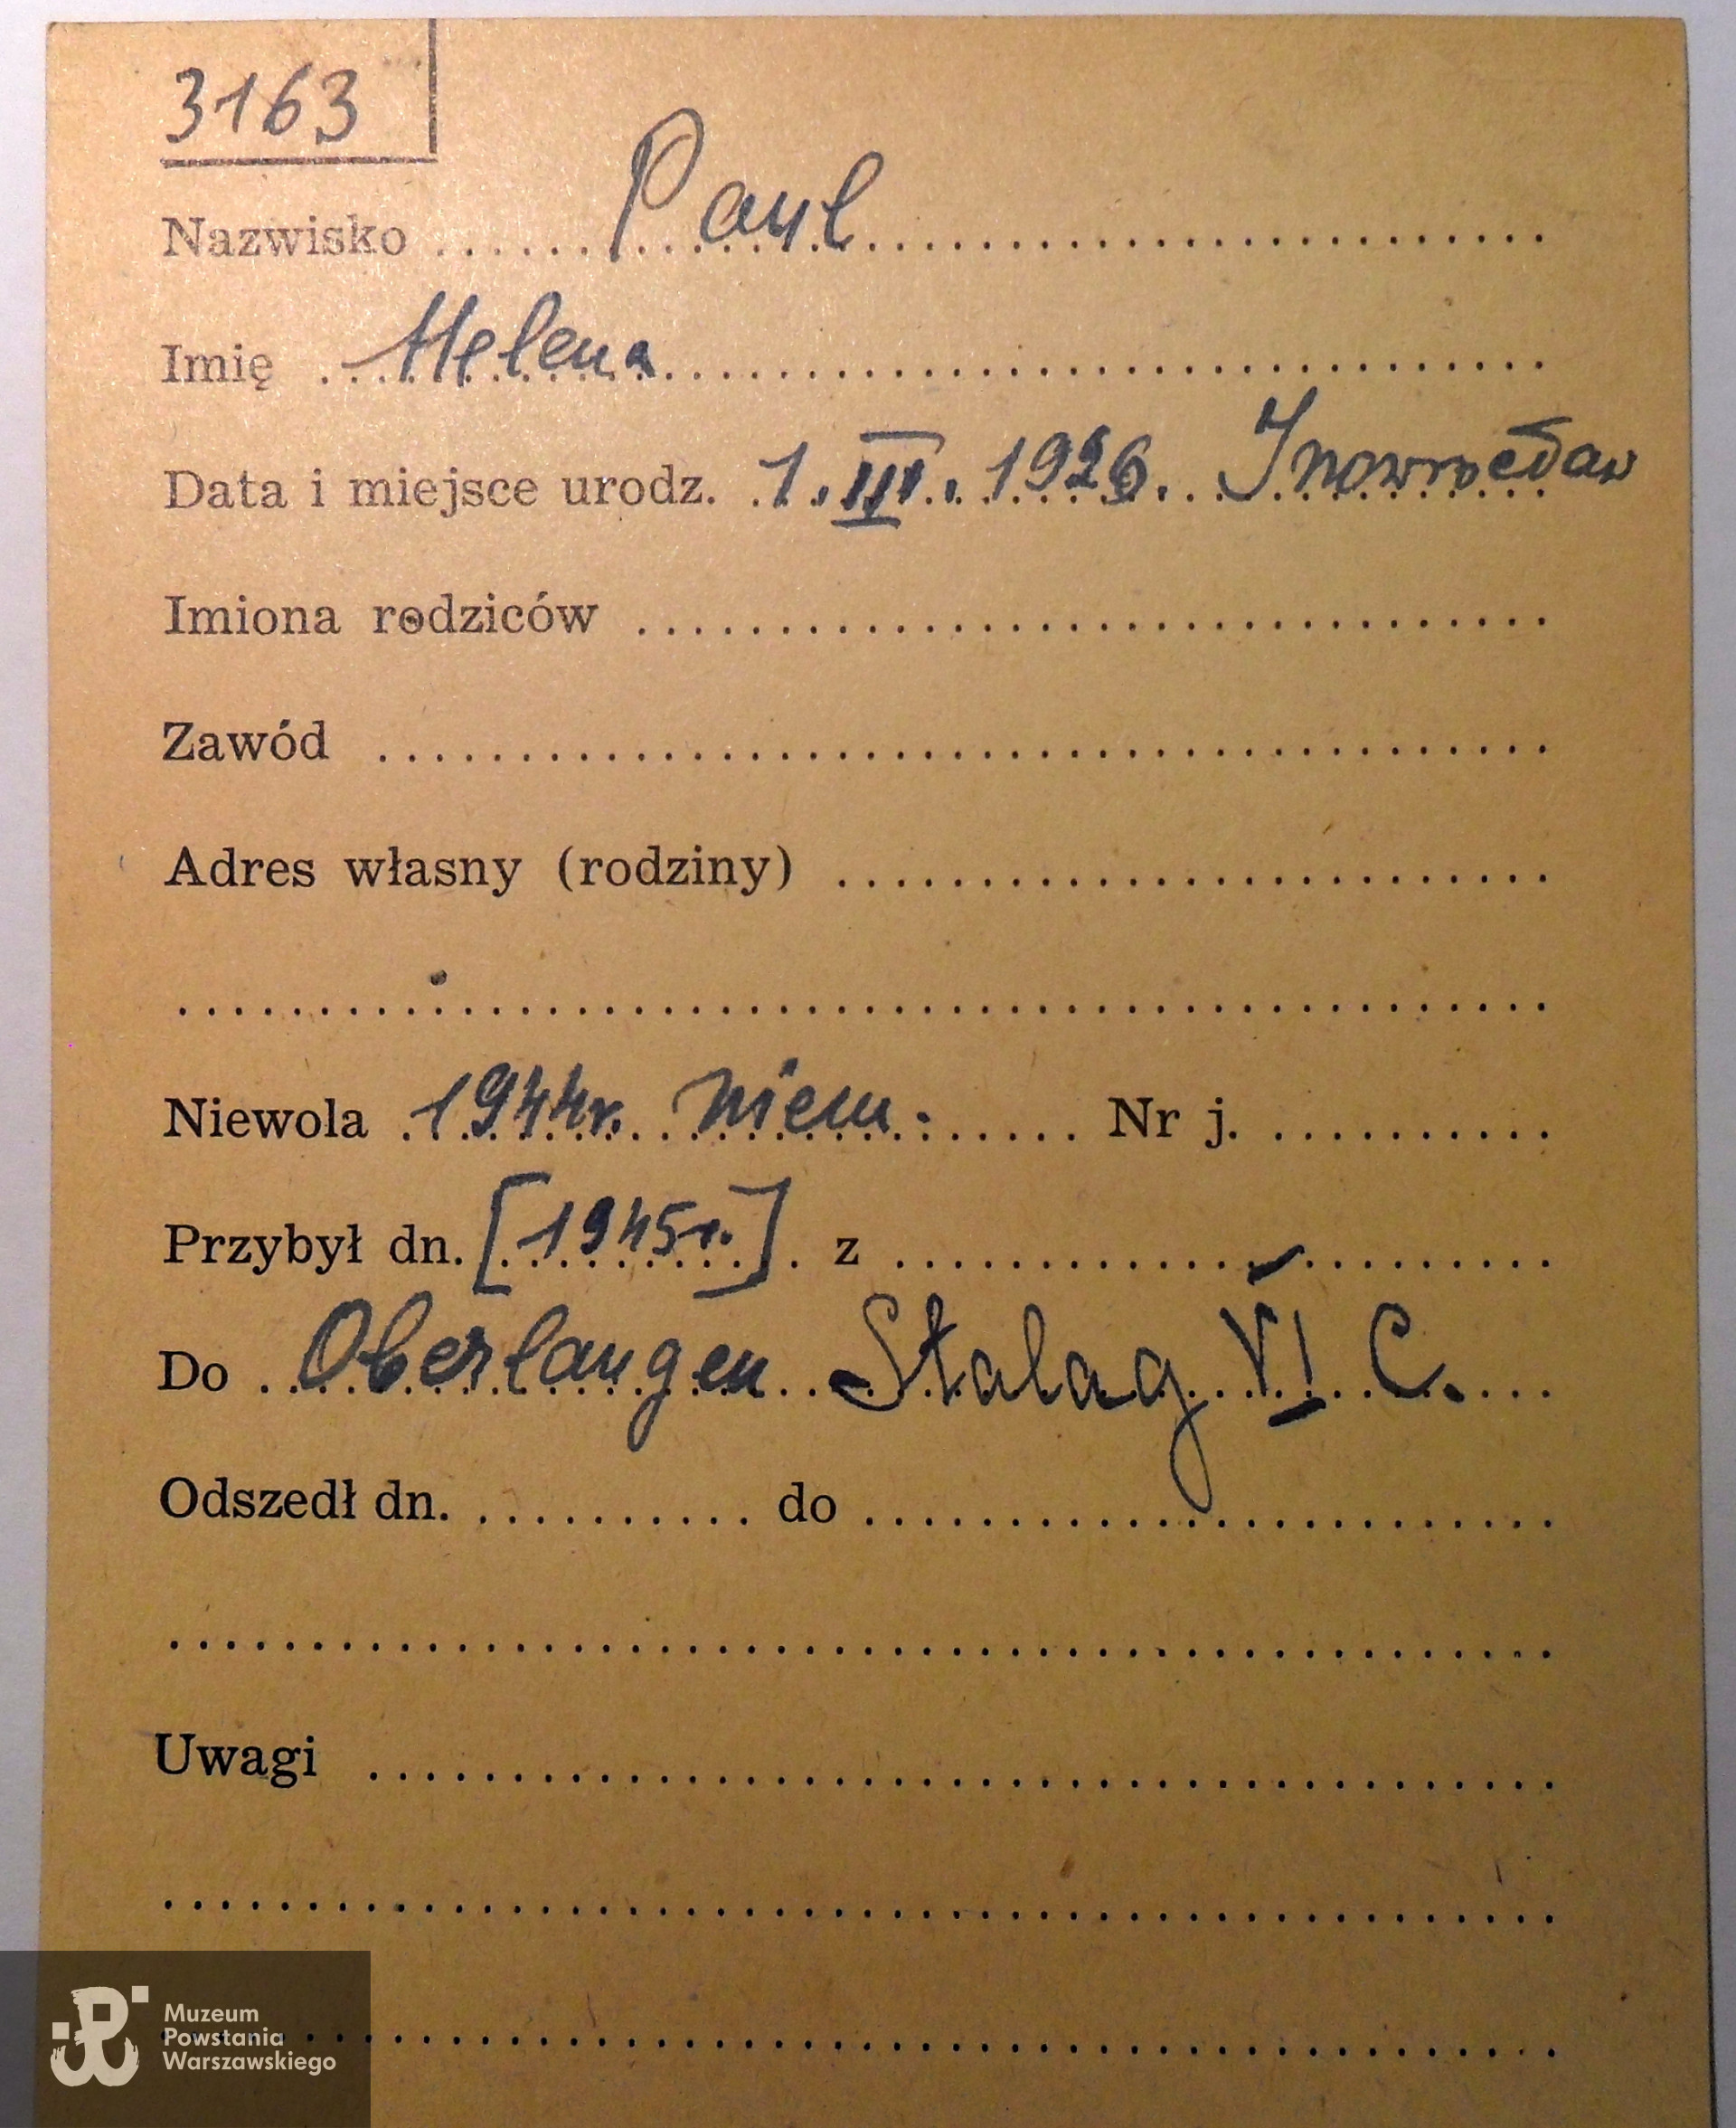 3163
Nazwisko Paul
Imię Helena
Data i miejsce urodz. 1. III. 1926. Inowrocław
Imiona rodziców
Zawód
Adres własny (rodziny)
Niewola 1944r. niem. Nr j.
Przybył dn. [1945r.] z
Do Oberlangen Stalag VI C.
Odszedł dn. do
Uwagi
Muzeum
Powstania
Warszawskiego